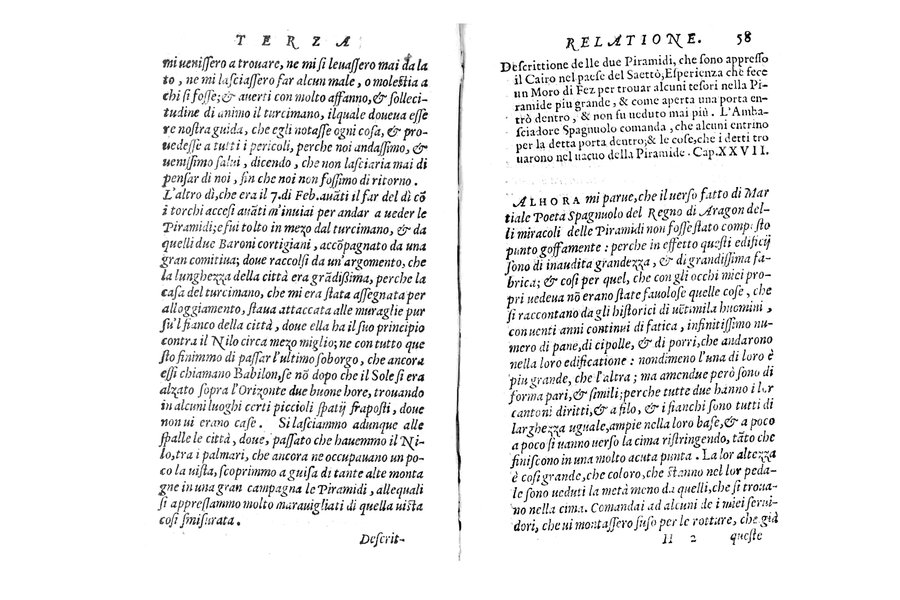 TERZA
mi uenissero a trouare, ne mi si leuassero mai da la
to, ne mi lasciassero far alcun male, o molestia a
chi si fosse; & auerti con molto affanno, & solleci-
tudine di animo il turcimano, il quale doueua esse
re nostra guida, che egli notasse ogni cosa, & pro-
uedesse a tutti i pericoli, perche noi andassimo, &
uenissimo salui, dicendo, che non lasciaria mai di
pensar di noi, fin che noi non fossimo di ritorno.
L'altro dì, che era il 7. di Feb. auãti il far del dì cõ
i torchi accesi auãti m'inuiai per andar a ueder le
Piramidi; e fui tolto in mezo dal turcimano, & da
quelli due Baroni cortigiani, accõpagnato da una
gran comitiua; doue raccolsi da un'argomento, che
la lunghezza della città era grãdissima, perche la
casa del turcimano, che mi era stata assegnata per
alloggiamento, staua attaccata alle muraglie pur
su'l fianco della città, doue ella ha il suo principio
contra il Nilo circa mezo miglio; ne con tutto que
sto finimmo di passar l'ultimo soborgo, che ancora
essi chiamano Babilon, se nõ dopo che il Sole si era
alzato sopra l'Orizonte due buone hore, trouando
in alcuni luoghi certi piccioli spatij fraposti, doue
non ui erano case. Si lasciammo adunque alle
spalle le città, doue, passato che hauemmo il Ni-
lo, tra i palmari, che ancora ne occupauano un po-
co la uista, scoprimmo a guisa di tante alte monta
gne in una gran campagna le Piramidi, alle quali
si appressammo molto marauigliati di quella uista
cosi smisurata.
Descrit-
RELATIONE. 58
Descrittione delle due Piramidi, che sono appresso
il Cairo nel paese del Saettò, Esperienza che fece
un Moro di Fez per trouar alcuni tesori nella Pi-
ramide piu grande, & come aperta una porta en-
trò dentro, & non fu ueduto mai più. L'Amba-
sciadore Spagnuolo comanda, che alcuni entrino
per la detta porta dentro; & le cose, che i detti tro
uarono nel uacuo della Piramide. Cap. XXVII.
ALHORA mi parue, che il uerso fatto di Mar
tiale Poeta Spagnuolo del Regno di Aragon del-
li miracoli delle Piramidi non fosse stato composto
punto goffamente: perche in effetto questi edificij
sono di inaudita grandezza, & di grandissima fa-
brica; & cosi per quel, che con gli occhi miei pro-
pri uedeua nõ erano state fauolose quelle cose, che
si raccontano da gli historici di uẽtimila huomini,
con uenti anni continui di fatica, infinitissimo nu-
mero di pane, di cipolle, & di porri, che andarono
nella loro edificatione: nondimeno l'una di loro è
piu grande, che l'altra; ma amendue però sono di
forma pari, & simili; perche tutte due hanno i lor
cantoni diritti, & a filo, & i fianchi sono tutti di
larghezza uguale, ampie nella loro base, & a poco
a poco si uanno uerso la cima ristringendo, tãto che
finiscono in una molto acuta punta. La lor altezza
è cosi grande, che coloro, che stanno nel lor peda-
le sono ueduti la metà meno da quelli, che si troua-
no nella cima. Comandai ad alcuni de i miei serui-
dori, che ui montassero suso per le rotture, che già
H 2 queste